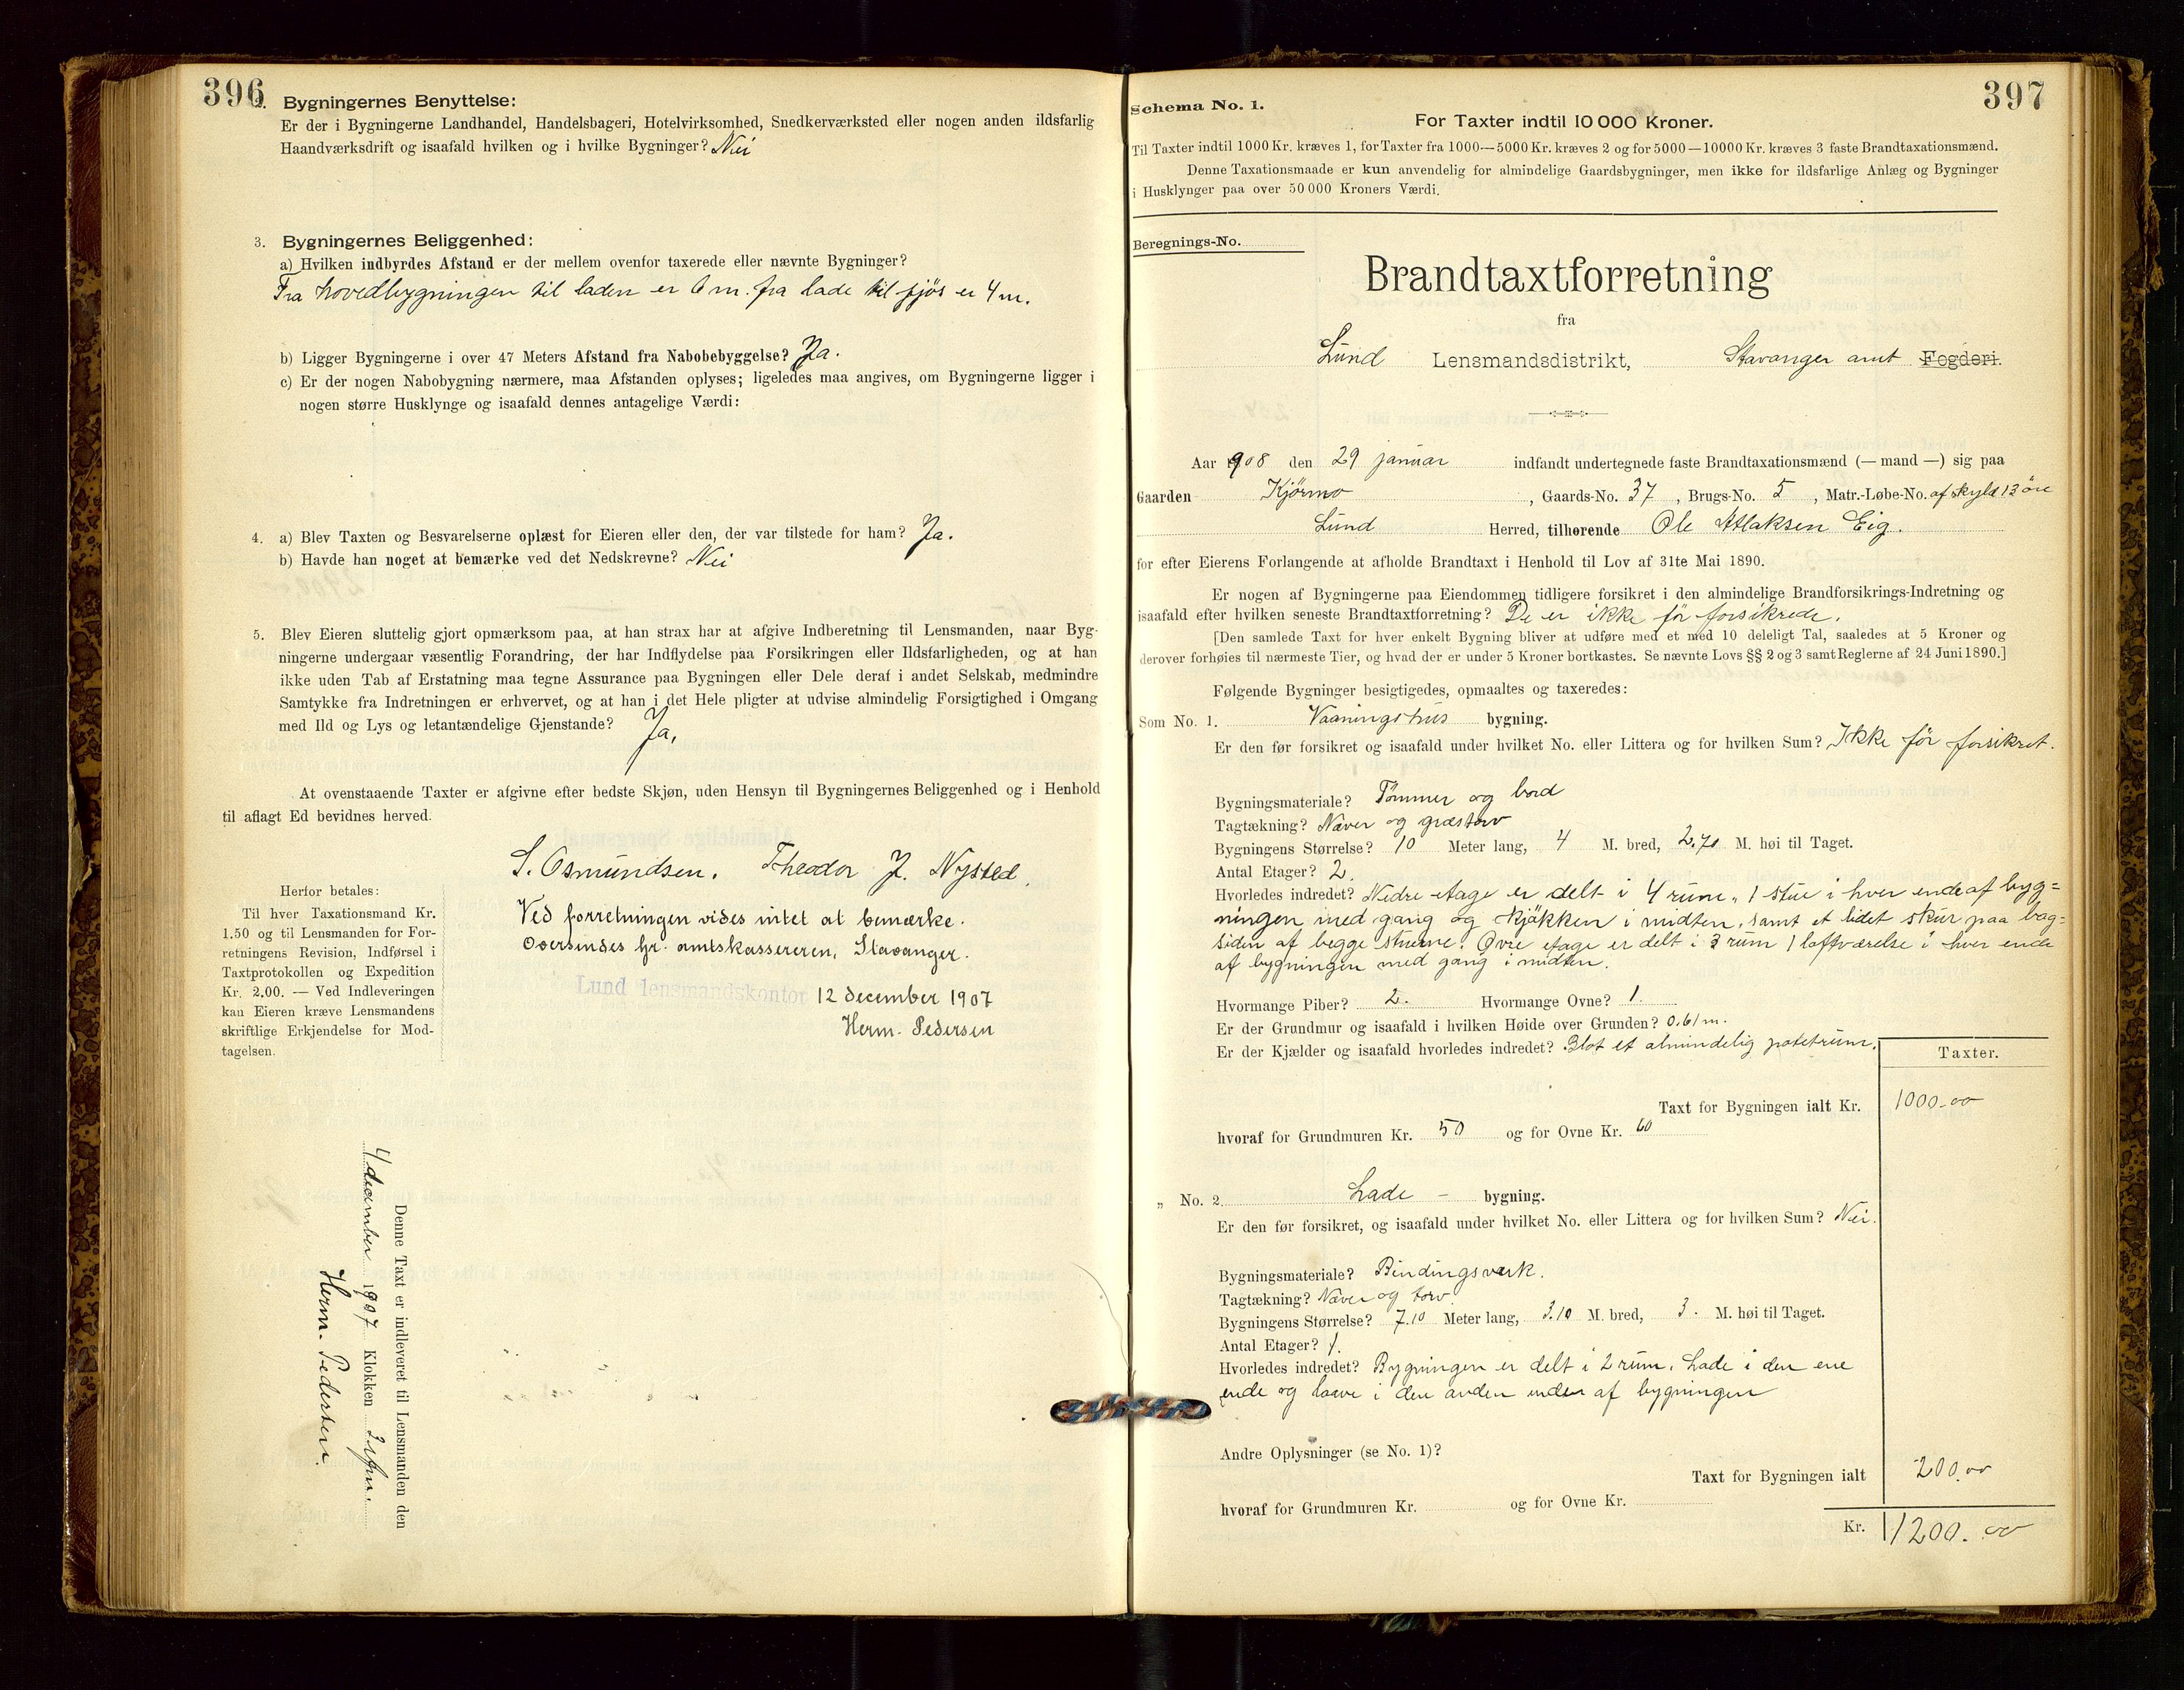 396
2. Bygningernes Benyttelse:
Er der i Bygningerne Landhandel, Handelsbageri, Hotelvirksomhed, Snedkerværksted eller nogen anden ildsfarlig
Haandværksdrift og isaafald hvilken og i hvilke Bygninger? Nei
3. Bygningernes Beliggenhed:
a) Hvilken indbyrdes Afstand er der mellem ovenfor taxerede eller nævnte Bygninger?
Fra hovedbygningen til laden er 6 m. fra lade til fjös er 4 m.
b) Ligger Bygningerne i over 47 Meters Afstand fra Nabobebyggelse? Ja.
c) Er der nogen Nabobygning nærmere, maa Afstanden oplyses; ligeledes maa angives, om Bygningerne ligger i
nogen større Husklynge og isaafald dennes antagelige Værdi:
4. a) Blev Taxten og Besvarelserne oplæst for Eieren eller den, der var tilstede for ham? Ja.
b) Havde han noget at bemærke ved det Nedskrevne? Nei
5. Blev Eieren sluttelig gjort opmærksom paa, at han strax har at afgive Indberetning til Lensmanden, naar Byg-
ningerne undergaar væsentlig Forandring, der har Indflydelse paa Forsikringen eller Ildsfarligheden, og at han
ikke uden Tab af Erstatning maa tegne Assurance paa Bygningen eller Dele deraf i andet Selskab, medmindre
Samtykke fra Indretningen er erhvervet, og at han i det Hele pligter at udvise almindelig Forsigtighed i Omgang
med Ild og Lys og letantændelige Gjenstande? Ja,
At ovenstaaende Taxter er afgivne efter bedste Skjøn, uden Hensyn til Bygningernes Beliggenhed og i Henhold
til aflagt Ed bevidnes herved.
S. Osmundsen. Theodor J. Nysted.
Herfor betales:
Til hver Taxationsmand Kr.
1.50 og til Lensmanden for For-
retningens Revision, Indførsel i
Taxtprotokollen og Expedition
Kr. 2.00. — Ved Indleveringen
kan Eieren kræve Lensmandens
skriftlige Erkjendelse for Mod-
tagelsen.
Ved forretningen vides intet at bemærke.
Oversendes hr. amtskassereren, Stavanger.
Lund lensmandskontor 12 december 1907
Herm. Pedersen
Denne Taxt er indleveret til Lensmanden den
4 december 1907 Klokken
Herm. Pedersen.
397
Schema No. 1.
For Taxter indtil 10 000 Kroner.
Til Taxter indtil 1000 Kr. kræves 1, for Taxter fra 1000—5000 Kr. kræves 2 og for 5000—10000 Kr. kræves 3 faste Brandtaxationsmænd.
Denne Taxationsmaade er kun anvendelig for almindelige Gaardsbygninger, men ikke for ildsfarlige Anlæg og Bygninger
i Husklynger paa over 50 000 Kroners Værdi.
Beregnings-No.
Brandtaxtforretning
fra
Lund Lensmandsdistrikt, Stavanger amt Fogderi.
Aar 1908 den 29 januar indfandt undertegnede faste Brandtaxationsmænd (— mand —) sig paa
Gaarden Kjörmo, Gaards-No. 37, Brugs-No. 5, Matr.-Løbe-No. af skyld 13 öre
Lund Herred, tilhørende Ole Atlaksen Eig.
for efter Eierens Forlangende at afholde Brandtaxt i Henhold til Lov af 31te Mai 1890.
Er nogen af Bygningerne paa Eiendommen tidligere forsikret i den almindelige Brandforsikrings-Indretning og
isaafald efter hvilken seneste Brandtaxtforretning? De er ikke för forsikrede.
[Den samlede Taxt for hver enkelt Bygning bliver at udføre med et med 10 deleligt Tal, saaledes at 5 Kroner og
derover forhøies til nærmeste Tier, og hvad der er under 5 Kroner bortkastes. Se nævnte Lovs §§ 2 og 3 samt Reglerne af 24 Juni 1890.]
Følgende Bygninger besigtigedes, opmaaltes og taxeredes:
Som No. 1. Vaaningshus bygning.
Er den før forsikret og isaafald under hvilket No. eller Littera og for hvilken Sum? Ikke för forsikret.
Bygningsmateriale? Tömmer og bord
Tagtækning? Næver og græstorv
Bygningens Størrelse? 10 Meter lang, 4 M. bred, 2.70 M. høi til Taget.
Antal Etager? 2.
Hvorledes indredet? Nedre etage er delt i 4 rum, 1 stue i hver ende af byg=
ningen med gang og kjökken i midten, samt et lidet skur paa bag-
siden af begge stuerne. Övre etage er delt i 3 rum 1 loftværelse i hver ende
af bygningen med gang i midten.
Hvormange Piber? 2. Hvormange Ovne? 1.
Er der Grundmur og isaafald i hvilken Høide over Grunden? 0.61 m.
Er der Kjælder og isaafald hvorledes indredet? Blot et almindelig potetrum.
Taxter.
Taxt for Bygningen ialt Kr. 1000.00
hvoraf for Grundmuren Kr. 50 og for Ovne Kr. 60
„ No. 2. Lade - bygning.
Er den før forsikret, og isaafald under hvilket No. eller Littera og for hvilken Sum? Nei.
Bygningsmateriale? Bindingsverk.
Tagtækning? Næver og torv.
Bygningens Størrelse? 7.10 Meter lang, 3.10 M. bred, 3. M. høi til Taget.
Antal Etager? 1.
Hvorledes indredet? Bygningen er delt i 2 rum. Lade i den ene
ende og laave i den anden enden af bygningen
Andre Oplysninger (se No. 1)?
Taxt for Bygningen ialt 200.00
hvoraf for Grundmuren Kr. og for Ovne Kr.
Kr. 1200.00